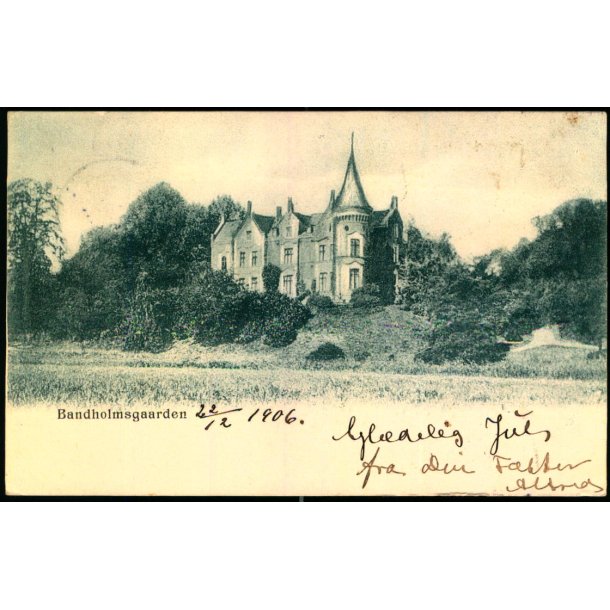 Bandholmsgaarden 22/12 1906.
Glædelig Jul
fra Din Fætter
Alfred